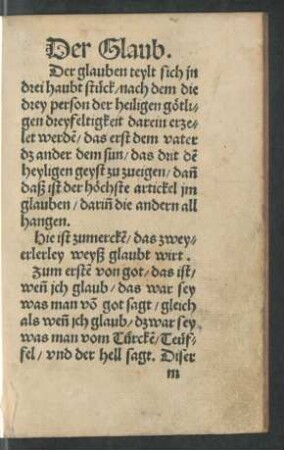 Der Glaub.
Der glauben teylt sich jn
drei haubt stück / nach dem die
drey person der heiligen götli⸗
gen dreyfeltigkeit darein erze⸗
let werdẽ / das erst dem vater
dz ander dem sun / das drit dẽ
heyligen geyst zu zueigen / dañ
daß ist der höchste artickel jm
glauben / dariñ die andern all
hangen.
Hie ist zumerckẽ / das zwey⸗
erlerley weyß glaubt wirt.
Zum erstẽ von got / das ist /
weñ jch glaub / das war sey
was man võ got sagt / gleich
als weñ jch glaub / dz war sey
was man vom Türckẽ / Teüf⸗
fel / vnd der hell sagt. Diser
m